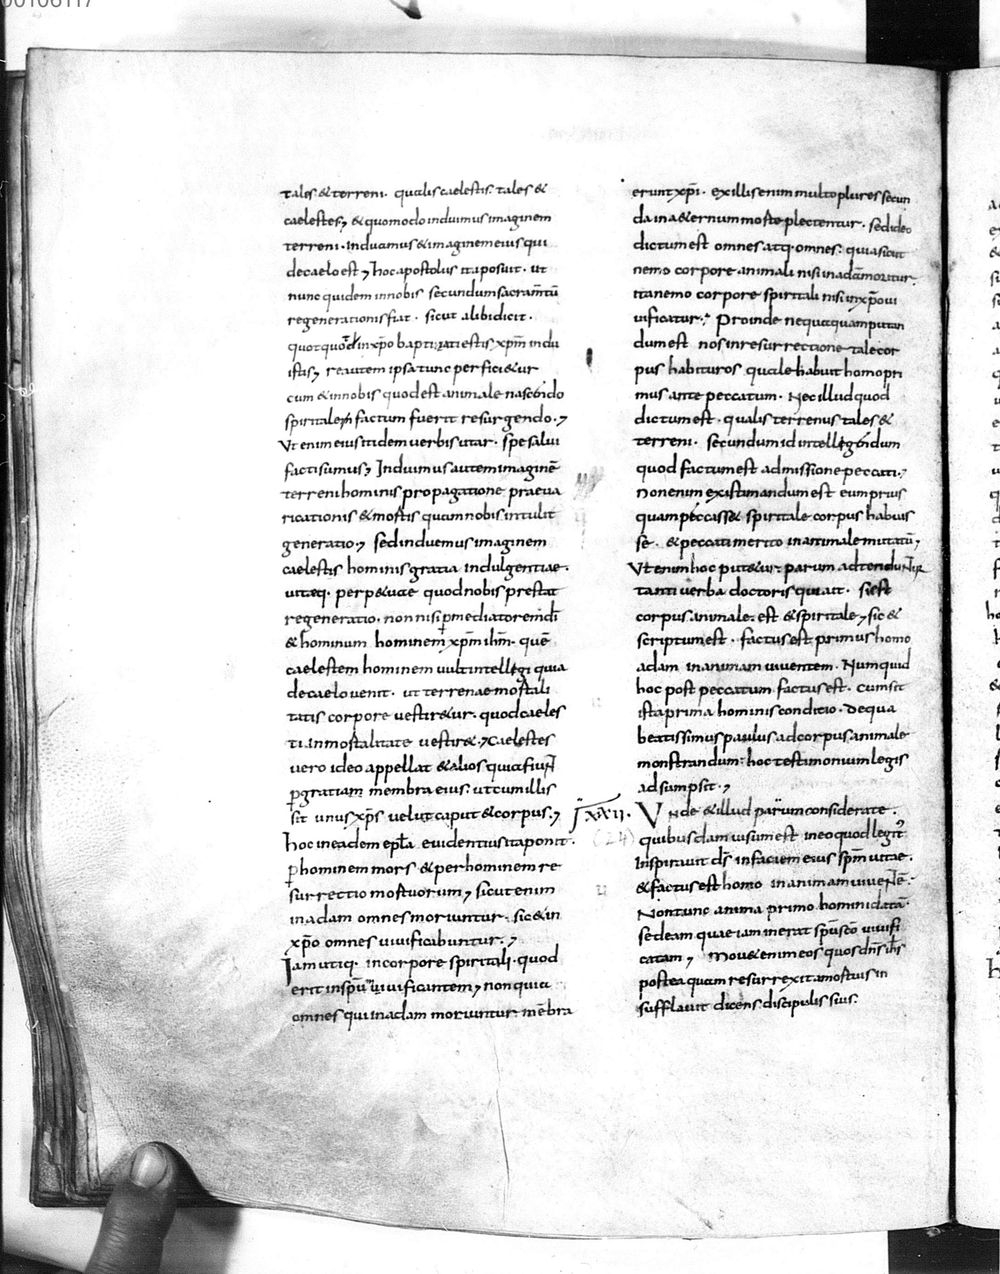 00106117
tales & terreni. qualis caelestis. tales &
caelestes; & quomodo induimus imaginem
terreni. induamus & imaginem eius qui
decaelo est; hoc apostolus ita posuit. ut
nunc quidem innobis secundum sacramtū
regenerationis fiat. sicut alibi dicit.
quotquod inxp̄o baptizati estis xp̄m indu
istis; reautem ipsa tunc perfici&ur
cum & innobis quod est animale nascendo
spiritale factum fuerit resurgendo;
Ut enim eius itidem verbis utar. spe salui
facti sumus; Induimus autem imaginē
terreni hominis propagatione praeua
ricationis & mortis quam nobis intulit
generatio; sed induemus imaginem
caelestis hominis gratia indulgentiae.
uitaeq. perp&uae quod nobis prestat
regeneratio. non nisi p mediatorem dī
& hominum hominem xp̄m ih̄m. quē
caelestem hominem uult intellegi quia
decaelo uenit. ut terrenae mortali
tatis corpore uestir&ur. quod caeles
ti inmortalitate uestir&; Caelestes
vero ideo appellat & alios quia fiuNt
p gratiam membra eius. ut cum illis
sit unus xp̄s velut caput & corpus;
hoc ineadem epl̄a euidentius ita ponit.
p hominem mors & per hominem re
surrectio mortuorum; sicut enim
inadam omnes moriuntur. sic & in
xp̄o omnes uiuificabuntur;
Iam utiq. incorpore spiritali. quod
erit insp̄u uiuificantem; non quia
omnes qui inadam moriuntur mēbra
erunt xp̄i. ex illis enim multo plures secun
da in a&ernum morte plectentur. sed ideo
dictum est omnes atq. omnes. quia sicut
nemo corpore animali nisi inadam moritur.
ita nemo corpore spiritali nisi inxp̄o ui
uificatur; Proinde nequaquam putan
dum est nos inresurrectione tale cor
pus habituros quale habuit homo pri
mus ante peccatum. Nec illud quod
dictum est. qualis terrenus tales &
terreni. secundum id intellegendum
quod factum est admissione peccati;
non enim existimandum est eum prius
quam peccass& spiritale corpus habuis
se. & peccati merito inanimale mutatū;
Ut enim hoc put&ur. parum adtenduNtur
tanti uerba doctoris qui ait. si est
corpus animale. est & spiritale; sic &
scriptum est. factus est primus homo
adam inanimam uiuentem. Numquid
hoc post peccatum factus est. cum sit
ista prima hominis conditio. De qua
beatissimus paulus ad corpus animale
monstrandum. hoc testimonium legis
adsumpsit;
XXII. Unde & illud parum considerate.
(24) quibusdam uisum est ineo quod legit̄
Inspirauit d̄s infaciem eius sp̄m uitae.
& factus est homo inanimam uiueNtē.
Non tunc anima primo homini datā
sed eam quae iam inerat sp̄u sc̄o uiuifi
catam; mou& enim eos quod dn̄s ih̄s
postea quam resurrexit amortuis in
sufflauit dicens discipulis suis.